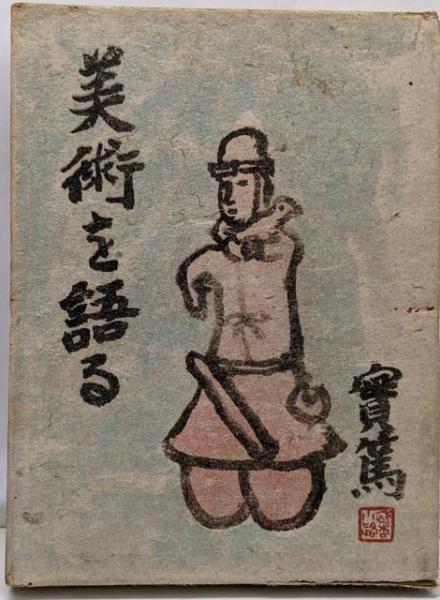 美術を語る
實篤